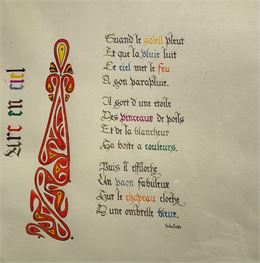 Arc en ciel
Quand le soleil pleut
Et que la pluie luit
Le ciel met le feu
A son parapluie.
Il sort d'une etoile
Des pinceaux de poils
Et de la blancheur
Sa boite a couleurs.
Puis il effiloche
Un paon fabuleux
Sur le chapeau cloche
D'une ombrelle bleue.